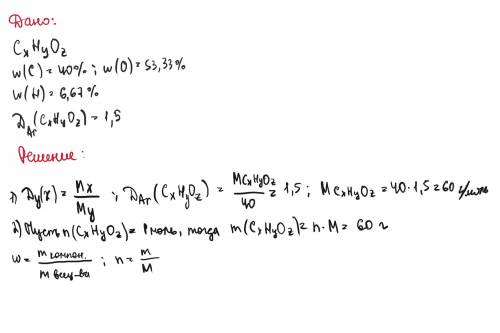 Дано:
CxHyOz
w(C)=40%; w(O)=53,33%
w(H)=6,67%
DAr(CxHyOz)=1,5
Решение:
1) Dy(x)=Mx/My ; DAr(CxHyOz)=MCxHyOz/40=1,5; MCxHyOz=40·1,5=60 г/моль
2) Пусть n(CxHyOz)=1 моль, тогда m(CxHyOz)=n·M=60 г
w=m компон./m вещ-ва ; n=m/M